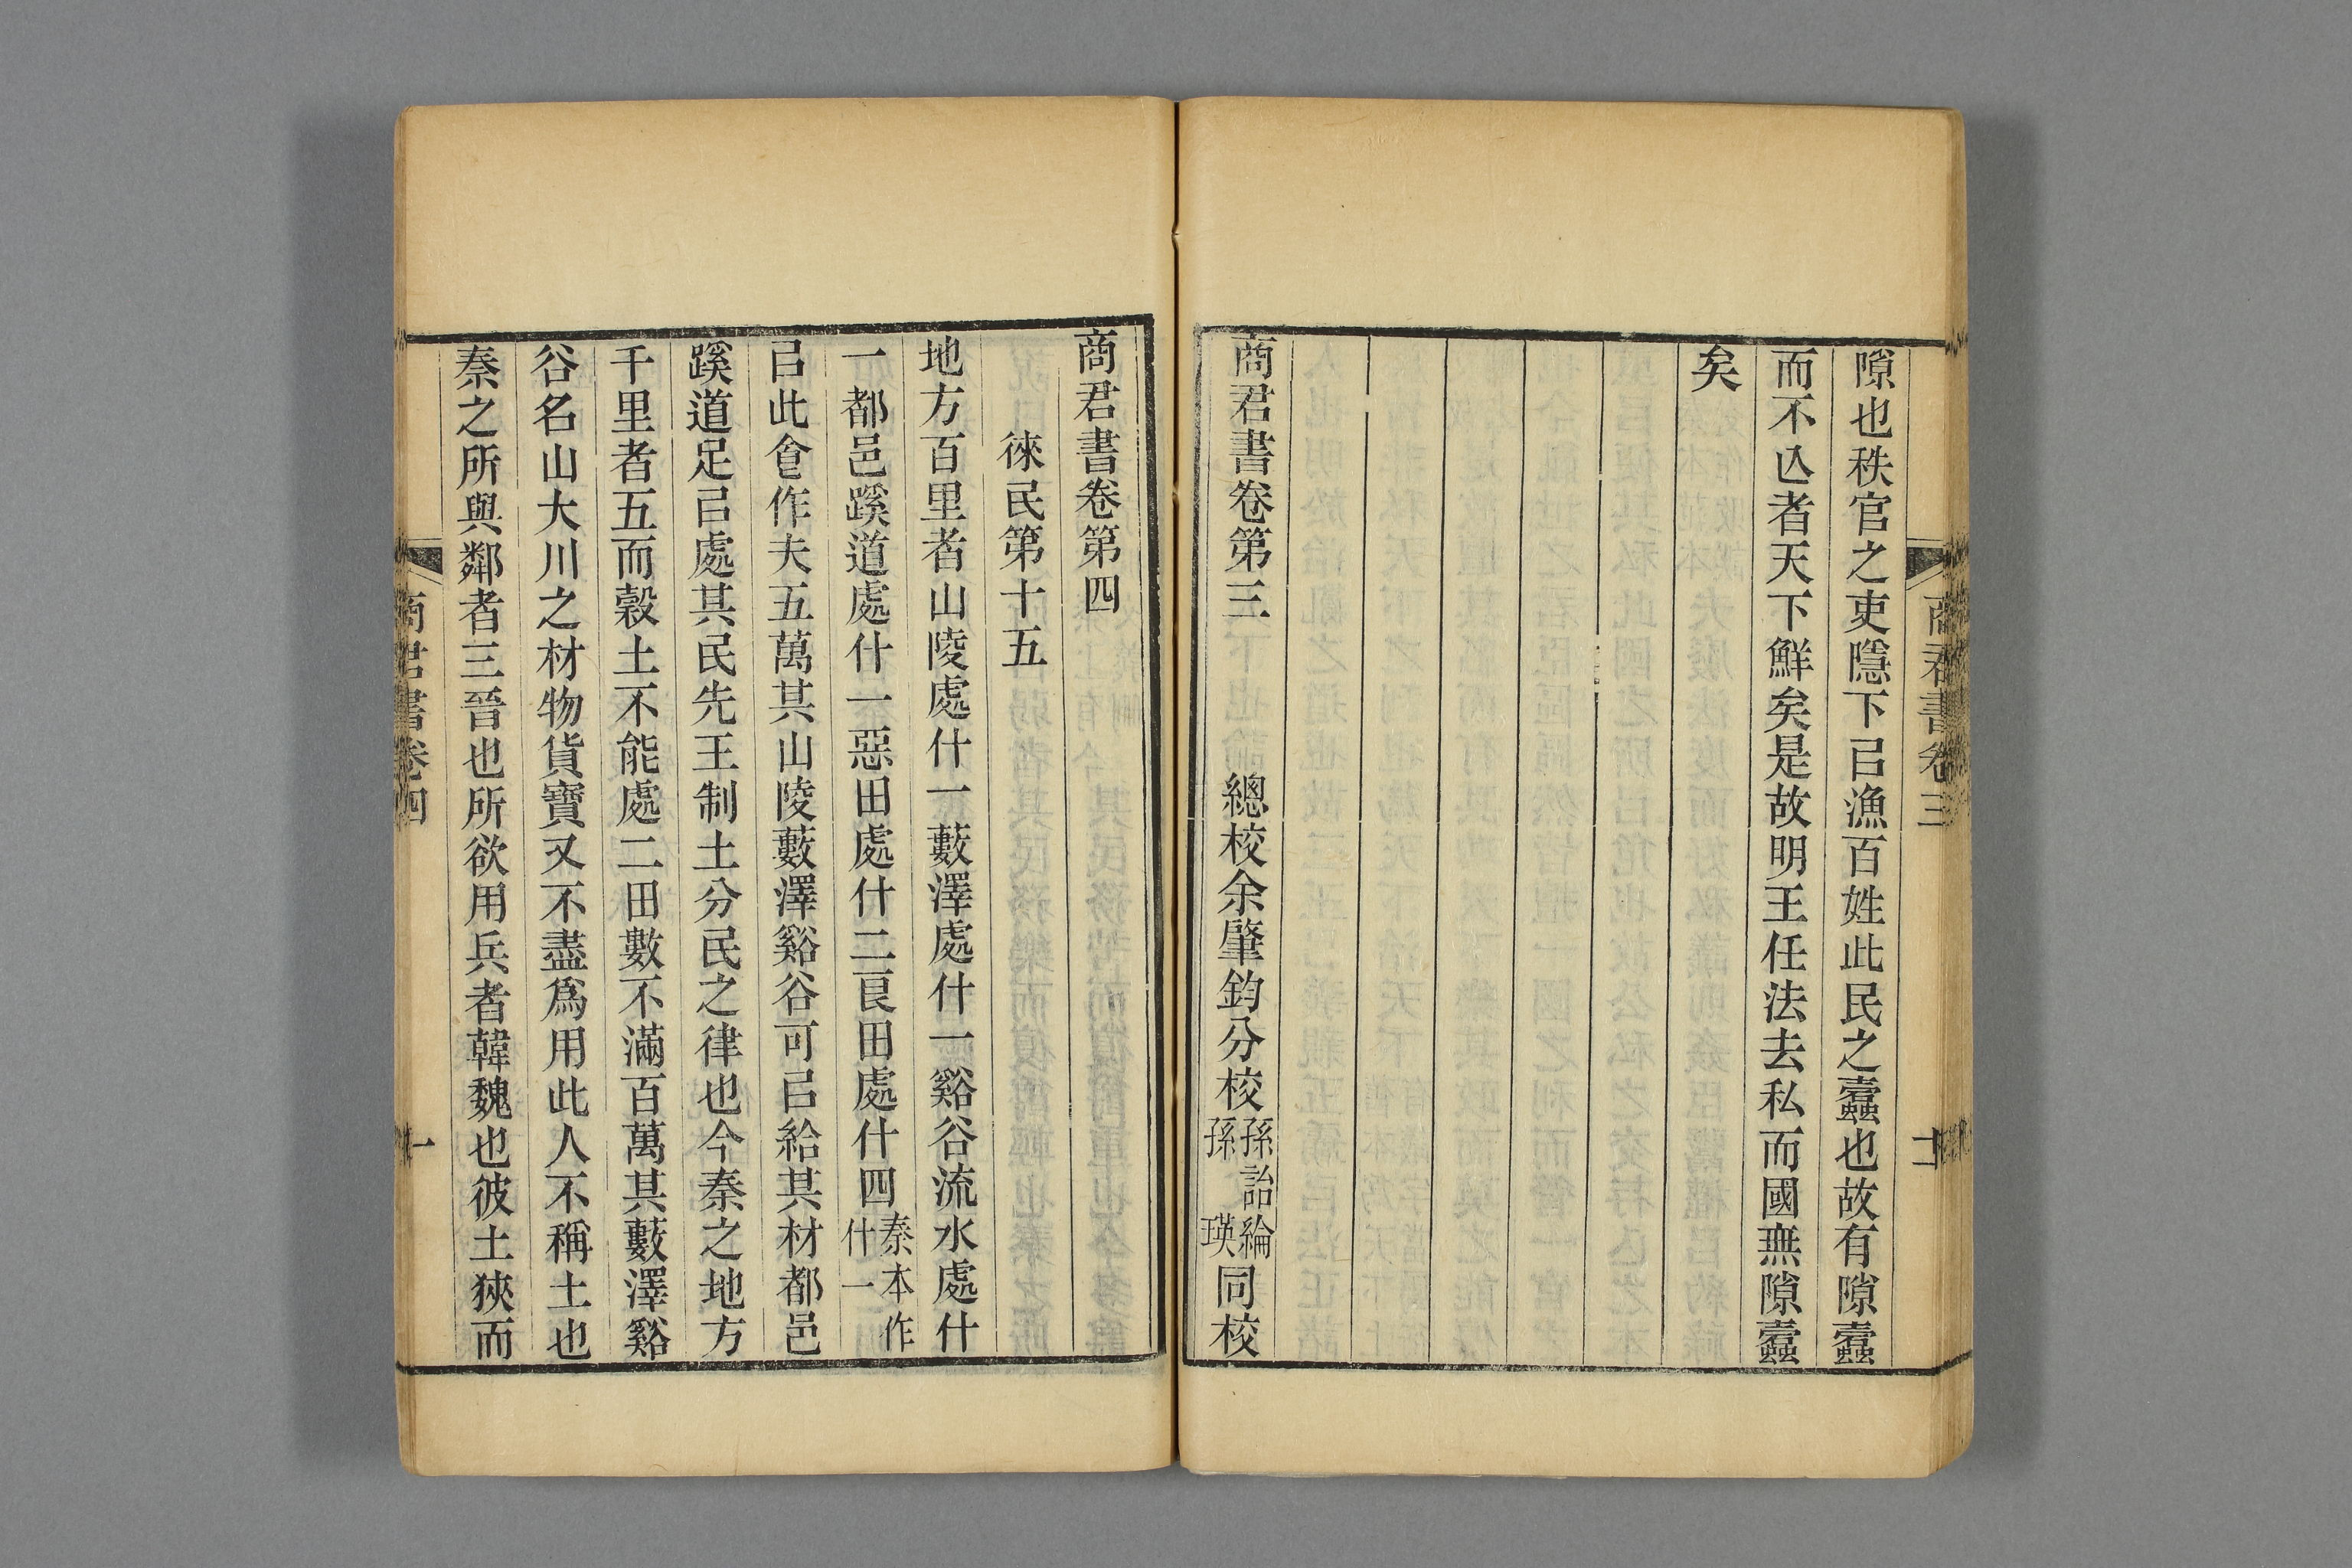 隙也秩官之吏隱下㠯漁百姓此民之蠹也故有隙蠹
而不亾者天下鮮矣是故明王任法去私而國無隙蠹
矣
商君書卷第三 總校余肇鈞分校孫詒綸孫瑛同校
商君書卷三
十一
商君書卷第四
徠民第十五
地方百里者山陵處什一藪澤處什一谿谷流水處什
一都邑蹊道處什一惡田處什二良田處什四秦本作什一
㠯此食作夫五萬其山陵藪澤谿谷可㠯給其材都邑
蹊道足㠯處其民先王制土分民之律也今秦之地方
千里者五而穀土不能處二田數不滿百萬其藪澤谿
谷名山大川之材物貨寶又不盡爲用此人不稱土也
秦之所與鄰者三晉也所欲用兵者韓魏也彼土狹而
商君書卷四
一